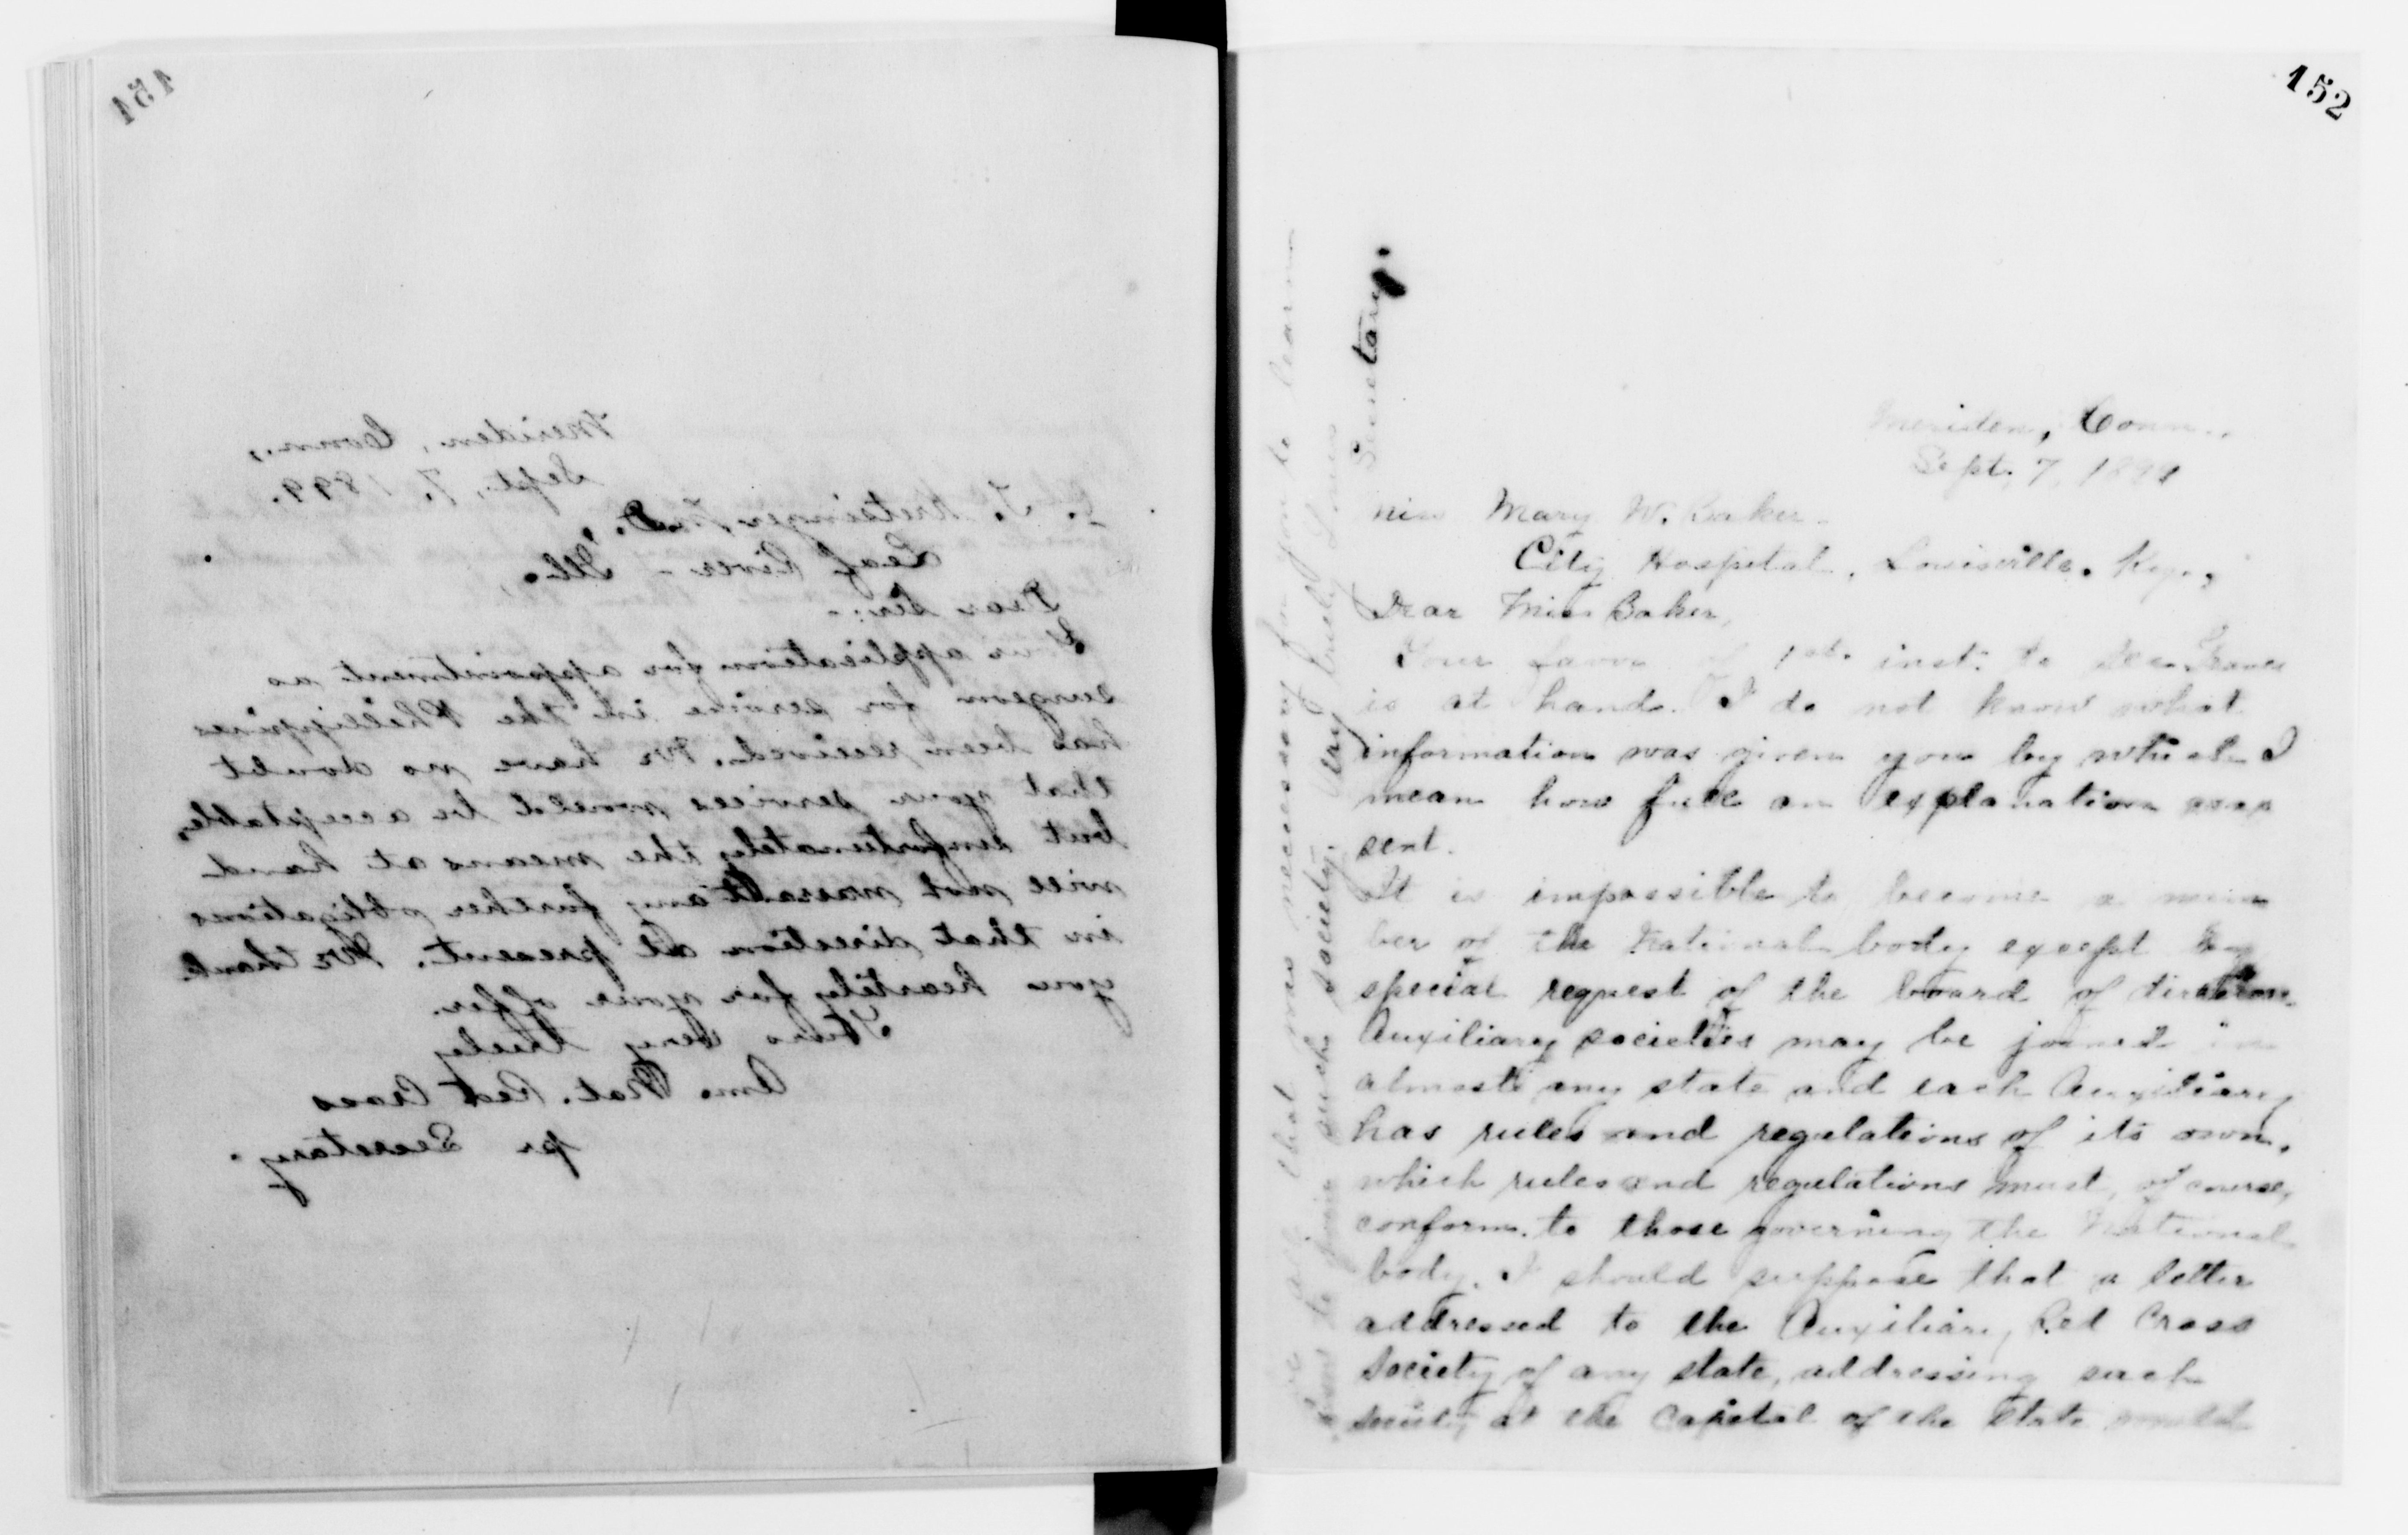 151
Meriden, Conn.,
Sept. 7. 1899.
J. Kretsinger M.D.,
Leaf River - Ill.,
Dear Sir:-
Your application for appointment as
surgeon for service in the Philippines
has been received. We have no doubt
that your services would be acceptable,
but unfortunately the means at hand
will not any further obligations
in that direction at present. We thank
you heartily for your offer.
Yours Very truly
Am. Nat. Red Cross
pr Secretary.
152
Meriden, Conn.,
Sept. 7, 1899
Miss Mary W. Baker
City Hospital, Louisville. Ky.,
Dear Miss Baker,
Your favor of 1st. inst. to
is at hand. I do not know what
information was given you by which I
mean how full an explanation was
sent.
It is impossible to become a mem
ber of the National body except by
special request of the board of directors.
Auxiliary societies may be joined in
almost any state and each Auxiliary
has rules and regulations of its own,
which rules and regulations must, of course,
conform to those governing the National
body. I should suppose that a letter
addressed to the Auxiliary Red Cross
Society of any state, addressing such
society at the Capital of the State would
that was necessary for you to learn
to join such society. Very truly Yours
Secretary.